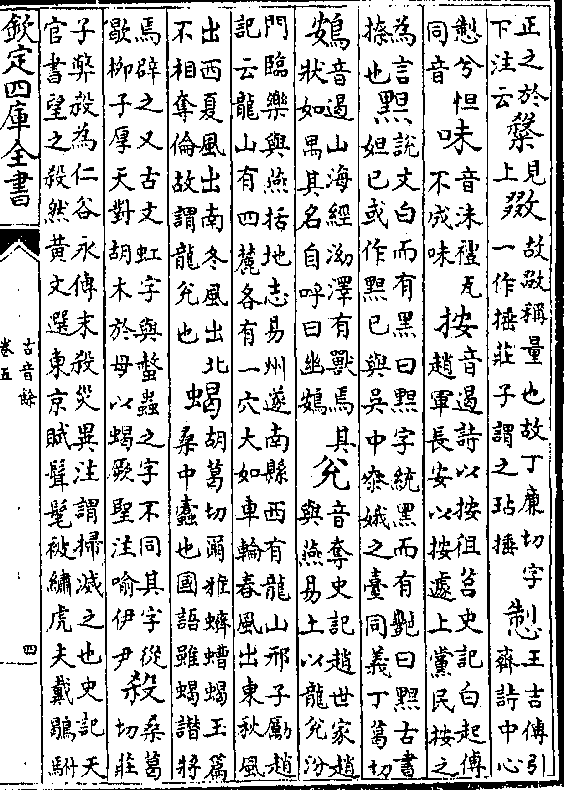 正之於下注云見上敠故敁稱量也故丁廉切字一作捶莊子謂之玷捶制王吉傳引齊詩中心
兮怛同音味音沬禮瓦不成味按音遏詩以按徂莒史記白起傳趙軍長安以按遽上黨民按之
為言捺也䵣說文白而有黑曰䵣字統黑而有艷曰䵣古書妲已或作䵣已與吴中桼娥之臺同義丁葛切
鴳音遏山海經泑澤有獸焉其狀如禺其名自呼曰幽鴳兊音奪史記趙世家趙與燕易土以龍兊汾
門臨樂與燕括地志易州遂南縣西有龍山邢子勵趙記云龍山有四麓各有一穴大如車輪春風出東秋風
出西夏風出南冬風出北不相奪倫故謂龍兊也蝎胡葛切爾雅蠐螬蝎玉篇桑中蠹也國語雖蝎譖將
焉辟之又古文虹字與螫蟲之字不同其字從歇柳子厚天對胡木於母以蝎厥聖注喻伊尹殺桑葛切莊
子弊殺為仁谷永傳末殺災異注謂掃滅之也史記天官書望之殺然黄文選東京賦髶髦被繡虎夫戴鶡駙
欽定四庫全書
古音餘
卷五
四